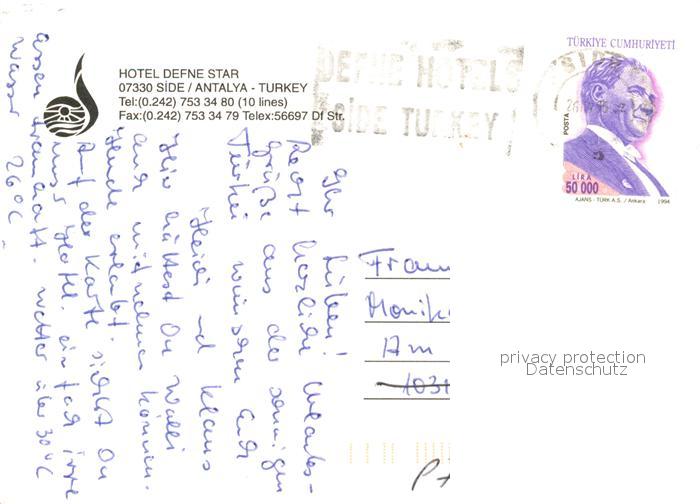 HOTEL DEFNE STAR
07330 SİDE / ANTALYA - TURKEY
Tel:(0.242) 753 34 80 (10 lines)
Fax:(0.242) 753 34 79 Telex:56697 Df Str.
DEFNE HOTELS
SİDE TURKEY
TÜRKİYE CUMHURİYETİ
POSTA
LİRA
50 000
AJANS - TÜRK A.S. / Ankara 1994
Ihr Lieben! Urlaubs-
Recht herzliche
grüße aus der sonnigen
Türkei wünschen Euch
Heidi und Klaus
Hier hättest Du Walli
auch mitnehmen können.
Auf der Karte siehst Du
unser Hotel. einfach irre
essen traumhaft. Wetter über 30°C
Wasser 26°C
Frau
Monik
Am
1031
privacy protection
Datenschutz